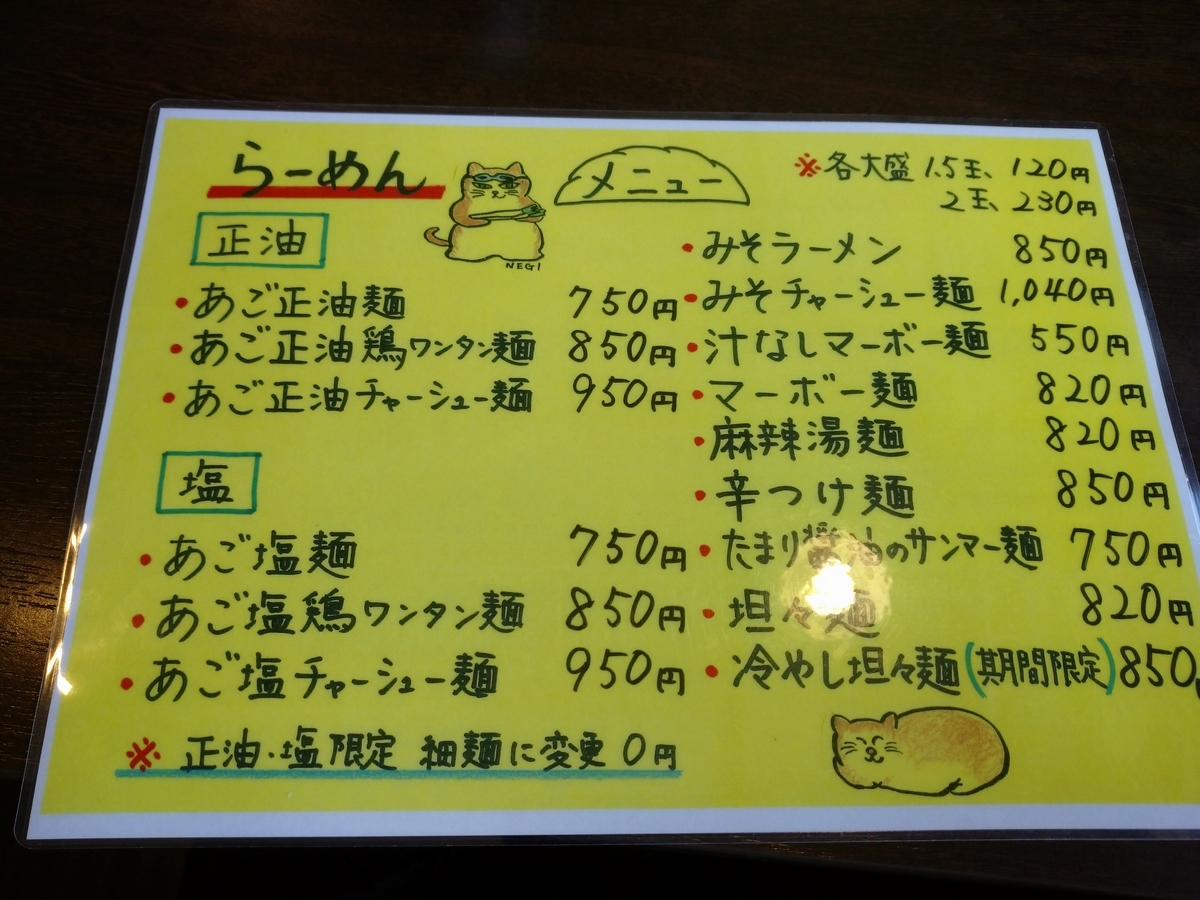 らーめん
メニュー
※各大盛 1.5玉、120円
2玉、230円
正油
・あご正油麺 750円
・あご正油鶏ワンタン麺 850円
・あご正油チャーシュー麺 950円
塩
・あご塩麺 750円
・あご塩鶏ワンタン麺 850円
・あご塩チャーシュー麺 950円
※ 正油・塩限定 細麺に変更 0円
NEGI
・みそラーメン 850円
・みそチャーシュー麺 1,040円
・汁なしマーボー麺 550円
・マーボー麺 820円
・麻辣湯麺 820円
・辛つけ麺 850円
・たまり醤油のサンマー麺 750円
・坦々麺 820円
・冷やし坦々麺(期間限定)850円